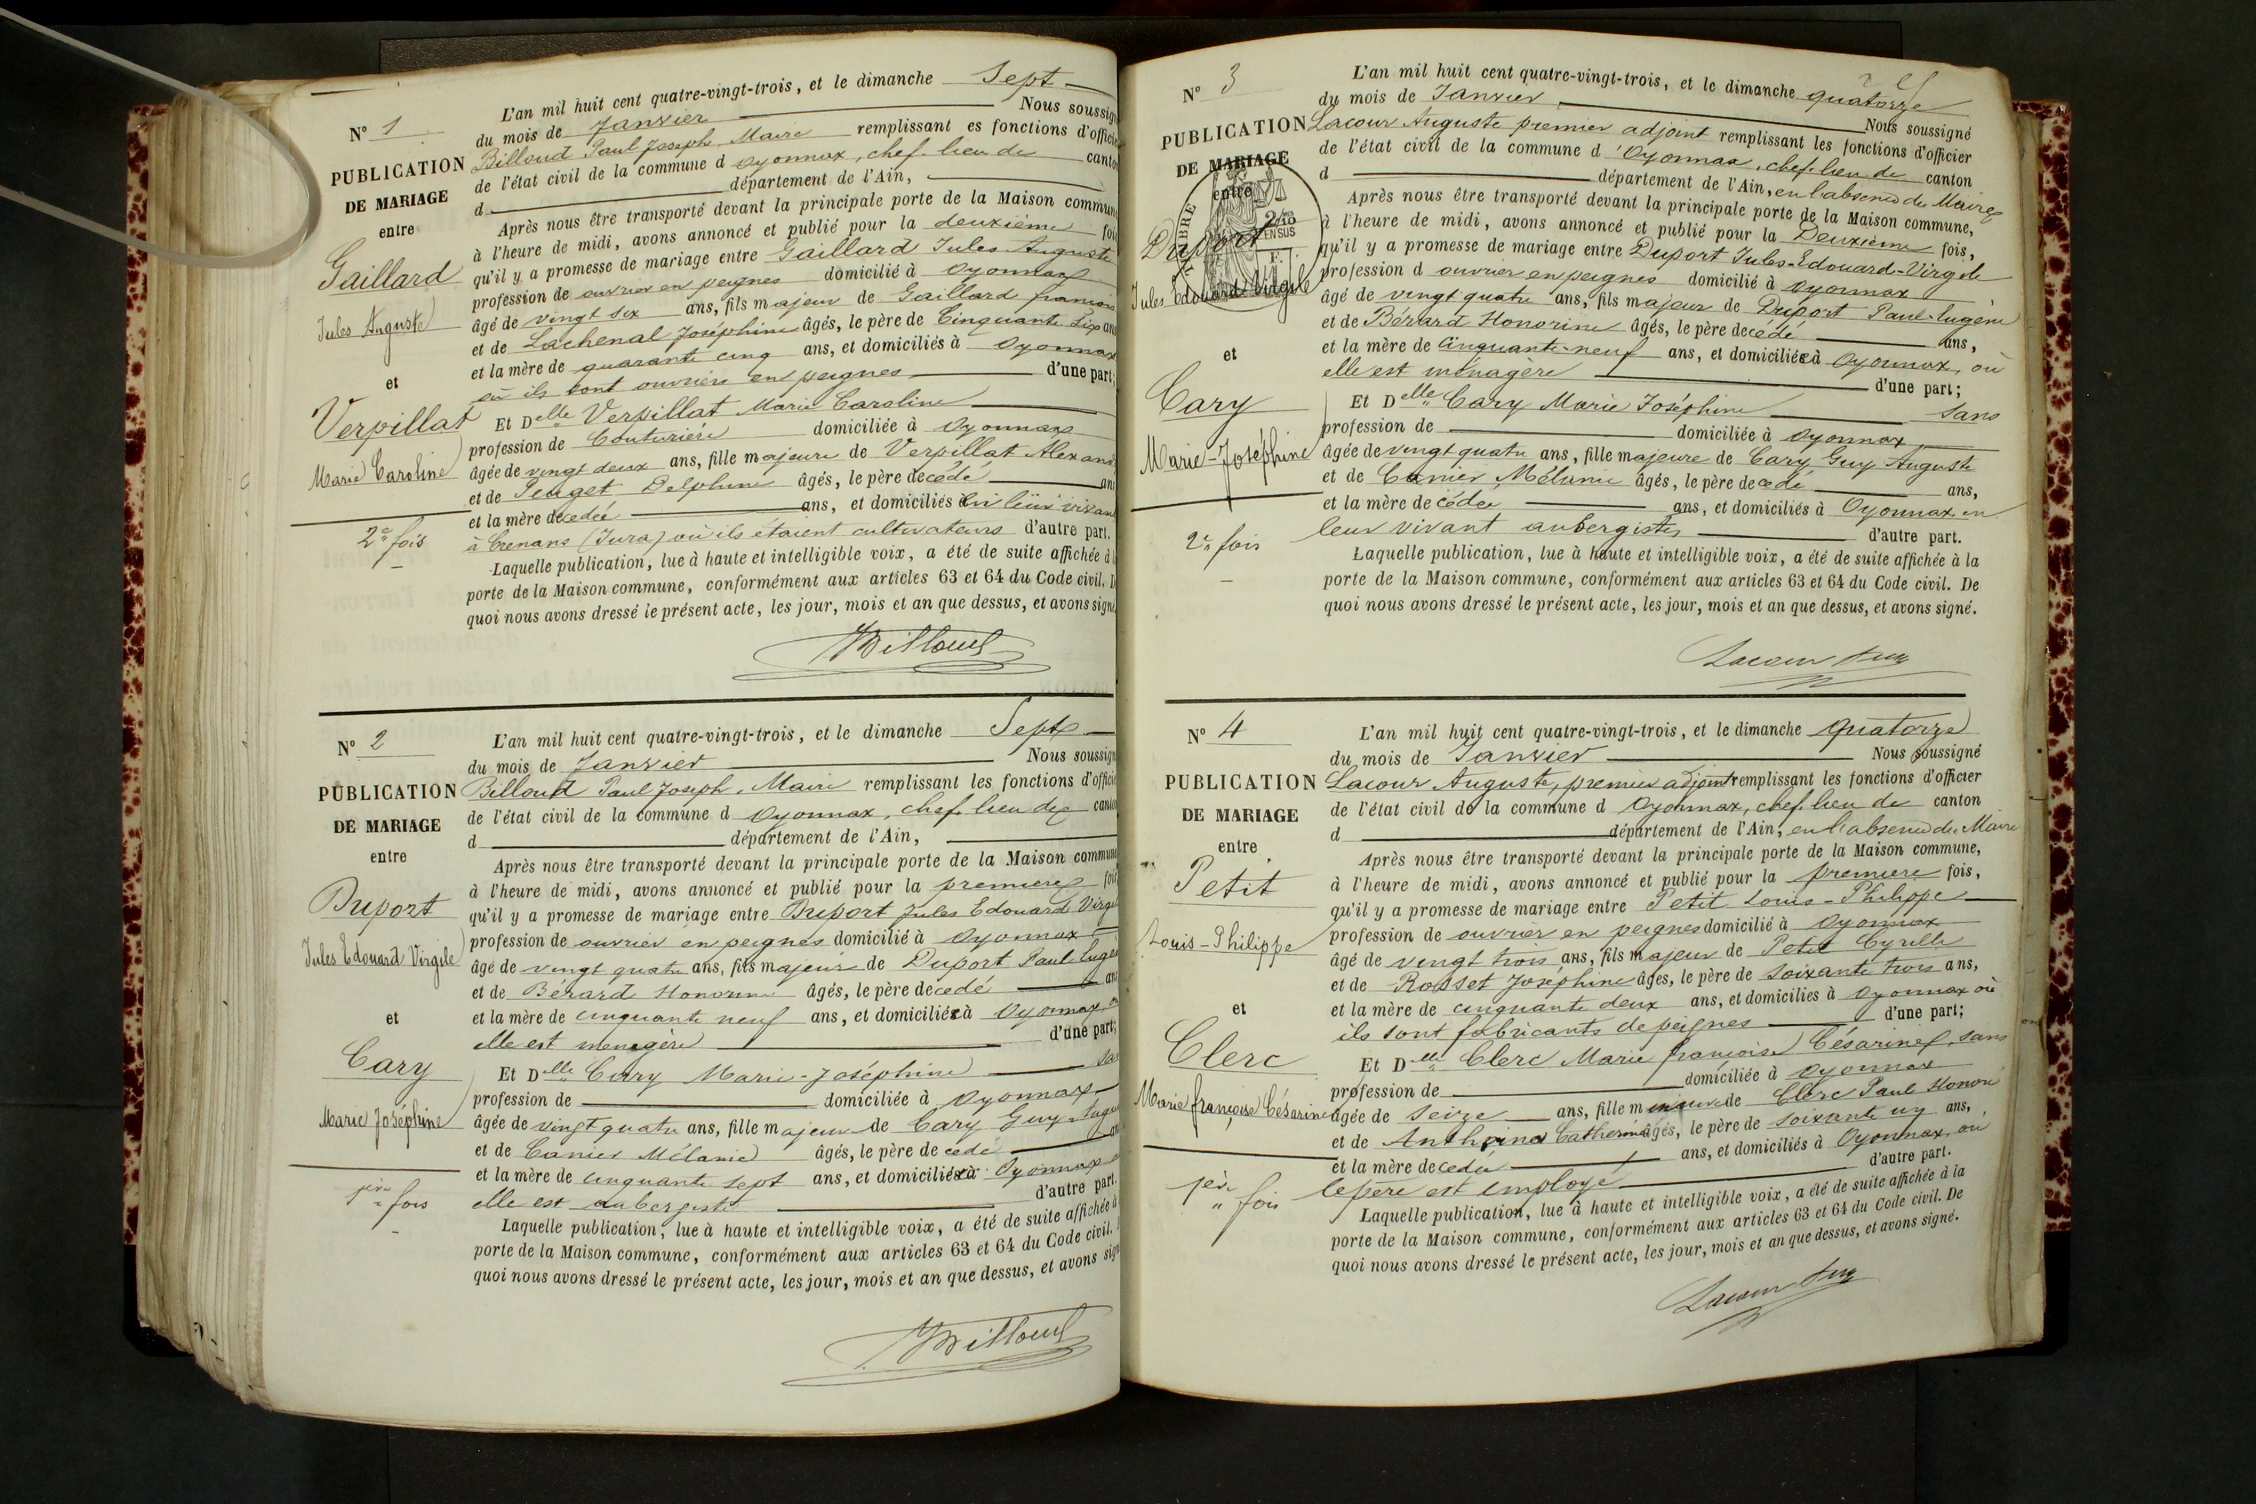 N° 1
PUBLICATION
DE MARIAGE
entre
Gaillard
Jules Auguste
et
Verpillat
Marie Caroline
2e fois
L'an mil huit cent quatre-vingt-trois, et le dimanche Sept
du mois de Janvier Nous soussign
Billoud Paul Joseph Maire remplissant es fonctions d'officie
de l'état civil de la commune d Oyonnax, chef-lieu de canton
d département de l'Ain,
Après nous être transporté devant la principale porte de la Maison commune
à l'heure de midi, avons annoncé et publié pour la deuxième fois
qu'il y a promesse de mariage entre Gaillard Jules Auguste
profession de ouvrier en peignes domicilié à Oyonnax
âgé de vingt six ans, fils majeur de Gaillard françois
et de Lachenal Joséphine âgés, le père de Cinquante Six ans
et la mère de quarante cinq ans, et domiciliés à Oyonnax
où ils sont ouvriers en peignes d'une part;
Et Delle Verpillat Marie Caroline
profession de Couturière domiciliée à Oyonnax
âgée de vingt deux ans, fille majeure de Verpillat Alexand
et de Peuget Delphine âgés, le père décédé ans
et la mère décédée ans, et domiciliés en leur vivant
à Crenans (Jura) où ils étaient cultivateurs d'autre part.
Laquelle publication, lue à haute et intelligible voix, a été de suite affichée à l
porte de la Maison commune, conformément aux articles 63 et 64 du Code civil. D
quoi nous avons dressé le présent acte, les jour, mois et an que dessus, et avons signé
Billoud
N° 2
PUBLICATION
DE MARIAGE
entre
Duport
Jules Edouard Virgile
et
Cary
Marie Joséphine
1ère fois
L'an mil huit cent quatre-vingt-trois, et le dimanche Sept
du mois de Janvier Nous soussign
Billoud Paul Joseph, Maire remplissant les fonctions d'officie
de l'état civil de la commune d Oyonnax, chef-lieu de canton
d département de l'Ain,
Après nous être transporté devant la principale porte de la Maison commune
à l'heure de midi, avons annoncé et publié pour la première fois
qu'il y a promesse de mariage entre Duport Jules Edouard Virgil
profession de ouvrier en peignes domicilié à Oyonnax
âgé de vingt quatre ans, fils majeur de Duport Paul Eugè
et de Bérard Honorine âgés, le père décédé an
et la mère de cinquante neuf ans, et domiciliée à Oyonnax où
elle est ménagère d'une part;
Et Delle Cary Marie-Joséphine san
profession de domiciliée à Oyonnax
âgée de vingt quatre ans, fille majeure de Cary Guy Augu
et de Canier Mélanie âgés, le père décédé an
et la mère de cinquante sept ans, et domiciliée à Oyonnax
elle est aubergiste d'autre part.
Laquelle publication, lue à haute et intelligible voix, a été de suite affichée à
porte de la Maison commune, conformément aux articles 63 et 64 du Code civil.
quoi nous avons dressé le présent acte, les jour, mois et an que dessus, et avons sign
Billoud
N° 3
PUBLICATION
DE MARIAGE
entre
TIMBRE
Duport
Jules Edouard Virgile
et
Cary
Marie-Joséphine
2e fois
L'an mil huit cent quatre-vingt-trois, et le dimanche quatorze
du mois de Janvier, Nous soussigné
Lacour Auguste premier adjoint remplissant les fonctions d'officier
de l'état civil de la commune d'Oyonnax, chef-lieu de canton
d département de l'Ain, en l'absence du Maire
Après nous être transporté devant la principale porte de la Maison commune,
à l'heure de midi, avons annoncé et publié pour la Deuxième fois,
qu'il y a promesse de mariage entre Duport Jules-Edouard-Virgile
profession d ouvrier en peignes domicilié à Oyonnax
âgé de vingt quatre ans, fils majeur de Duport Paul-Eugène
et de Bérard Honorine âgés, le père decédé ans,
et la mère de cinquante-neuf ans, et domiciliée à Oyonnax, où
elle est ménagère d'une part;
Et Delle Cary Marie Joséphine sans
profession de domiciliée à Oyonnax,
âgée de vingt quatre ans, fille majeure de Cary Guy Auguste
et de Canier Mélanie âgés, le père decédé ans,
et la mère decédée ans, et domiciliés à Oyonnax en
leur vivant aubergistes d'autre part.
Laquelle publication, lue à haute et intelligible voix, a été de suite affichée à la
porte de la Maison commune, conformément aux articles 63 et 64 du Code civil. De
quoi nous avons dressé le présent acte, les jour, mois et an que dessus, et avons signé.
Lacour Aug
N° 4
PUBLICATION
DE MARIAGE
entre
Petit
Louis-Philippe
et
Clerc
Marie françoise Césarine
1ère fois
L'an mil huit cent quatre-vingt-trois, et le dimanche quatorze
du mois de Janvier Nous soussigné
Lacour Auguste, premier adjoint remplissant les fonctions d'officier
de l'état civil de la commune d Oyonnax, chef-lieu de canton
d département de l'Ain, en l'absence du Maire
Après nous être transporté devant la principale porte de la Maison commune,
à l'heure de midi, avons annoncé et publié pour la première fois,
qu'il y a promesse de mariage entre Petit Louis-Philippe
profession de ouvrier en peignes domicilié à Oyonnax
âgé de vingt trois ans, fils majeur de Petit Cyrille
et de Rosset Joséphine âgés, le père de soixante trois ans,
et la mère de cinquante deux ans, et domiciliés à Oyonnax où
ils sont fabricants de peignes d'une part;
Et Delle Clerc Marie françoise Césarine, sans
profession de domiciliée à Oyonnax
âgée de seize ans, fille mineure de Clerc Paul Honoré
et de Anthoine Catherine âgés, le père de soixante un ans,
et la mère decédée ans, et domiciliés à Oyonnax, où
le père est employé d'autre part.
Laquelle publication, lue à haute et intelligible voix, a été de suite affichée à la
porte de la Maison commune, conformément aux articles 63 et 64 du Code civil. De
quoi nous avons dressé le présent acte, les jour, mois et an que dessus, et avons signé.
Lacour Aug